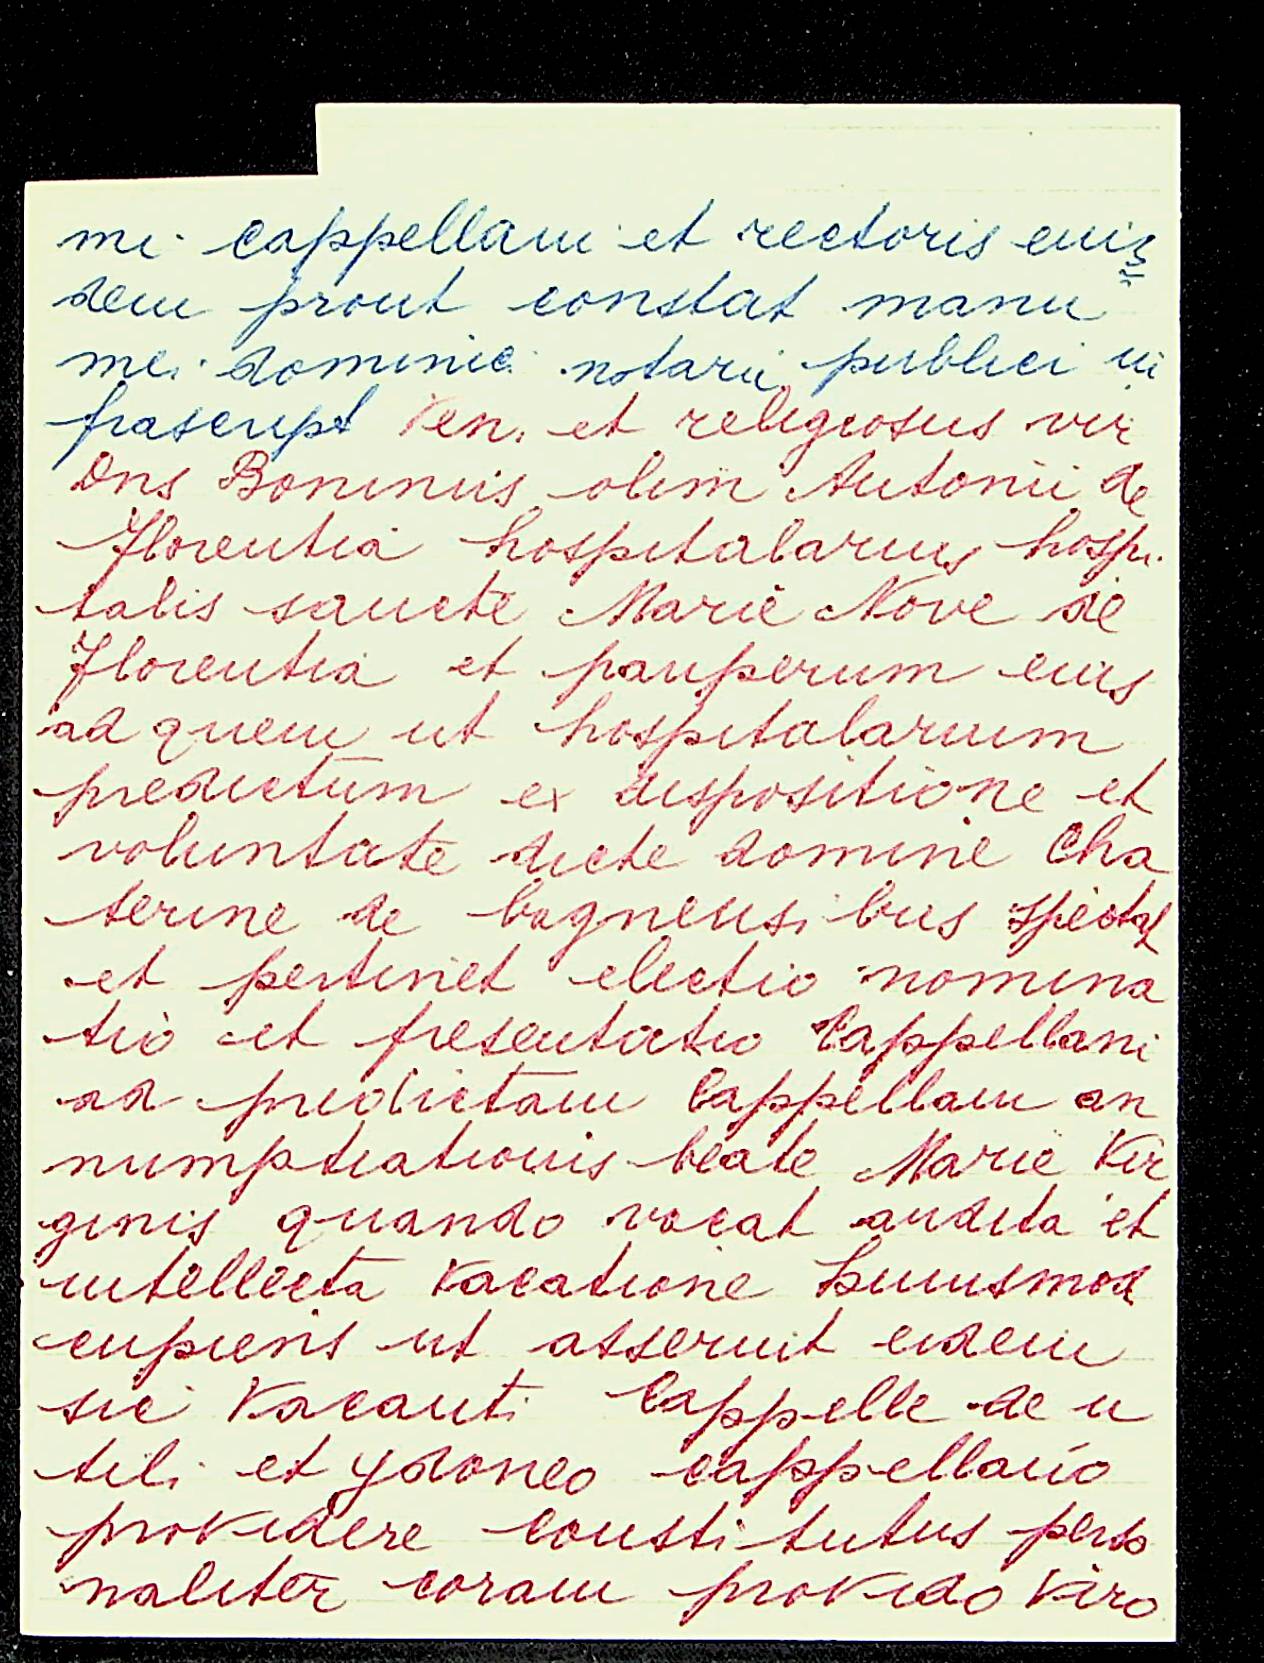 mi cappellani et rectoris eius
dem prout constat manu
mei dominici notarii publici in
frascript Ven. et religiosus vir
Dns Boninus olim Antonii de
Florentia hospitalarius hospi
talis sancte Marie Nove de
Florentia et pauperum eius
ad quem ut hospitalarium
predictum ex dispositione et
voluntate dicte domine Cha
terine de bagnensibus spectat
et pertinet electio nomina
tio et presentatio Cappellani
ad predictam Cappellam an
numptiationis beate Marie Vir
ginis quando vacat audita et
intellecta vacatione huiusmod
cupiens ut asseruit eidem
sic Vacanti Cappelle de u
tili et ydoneo cappellano
providere constitutus perso
naliter coram provido Viro